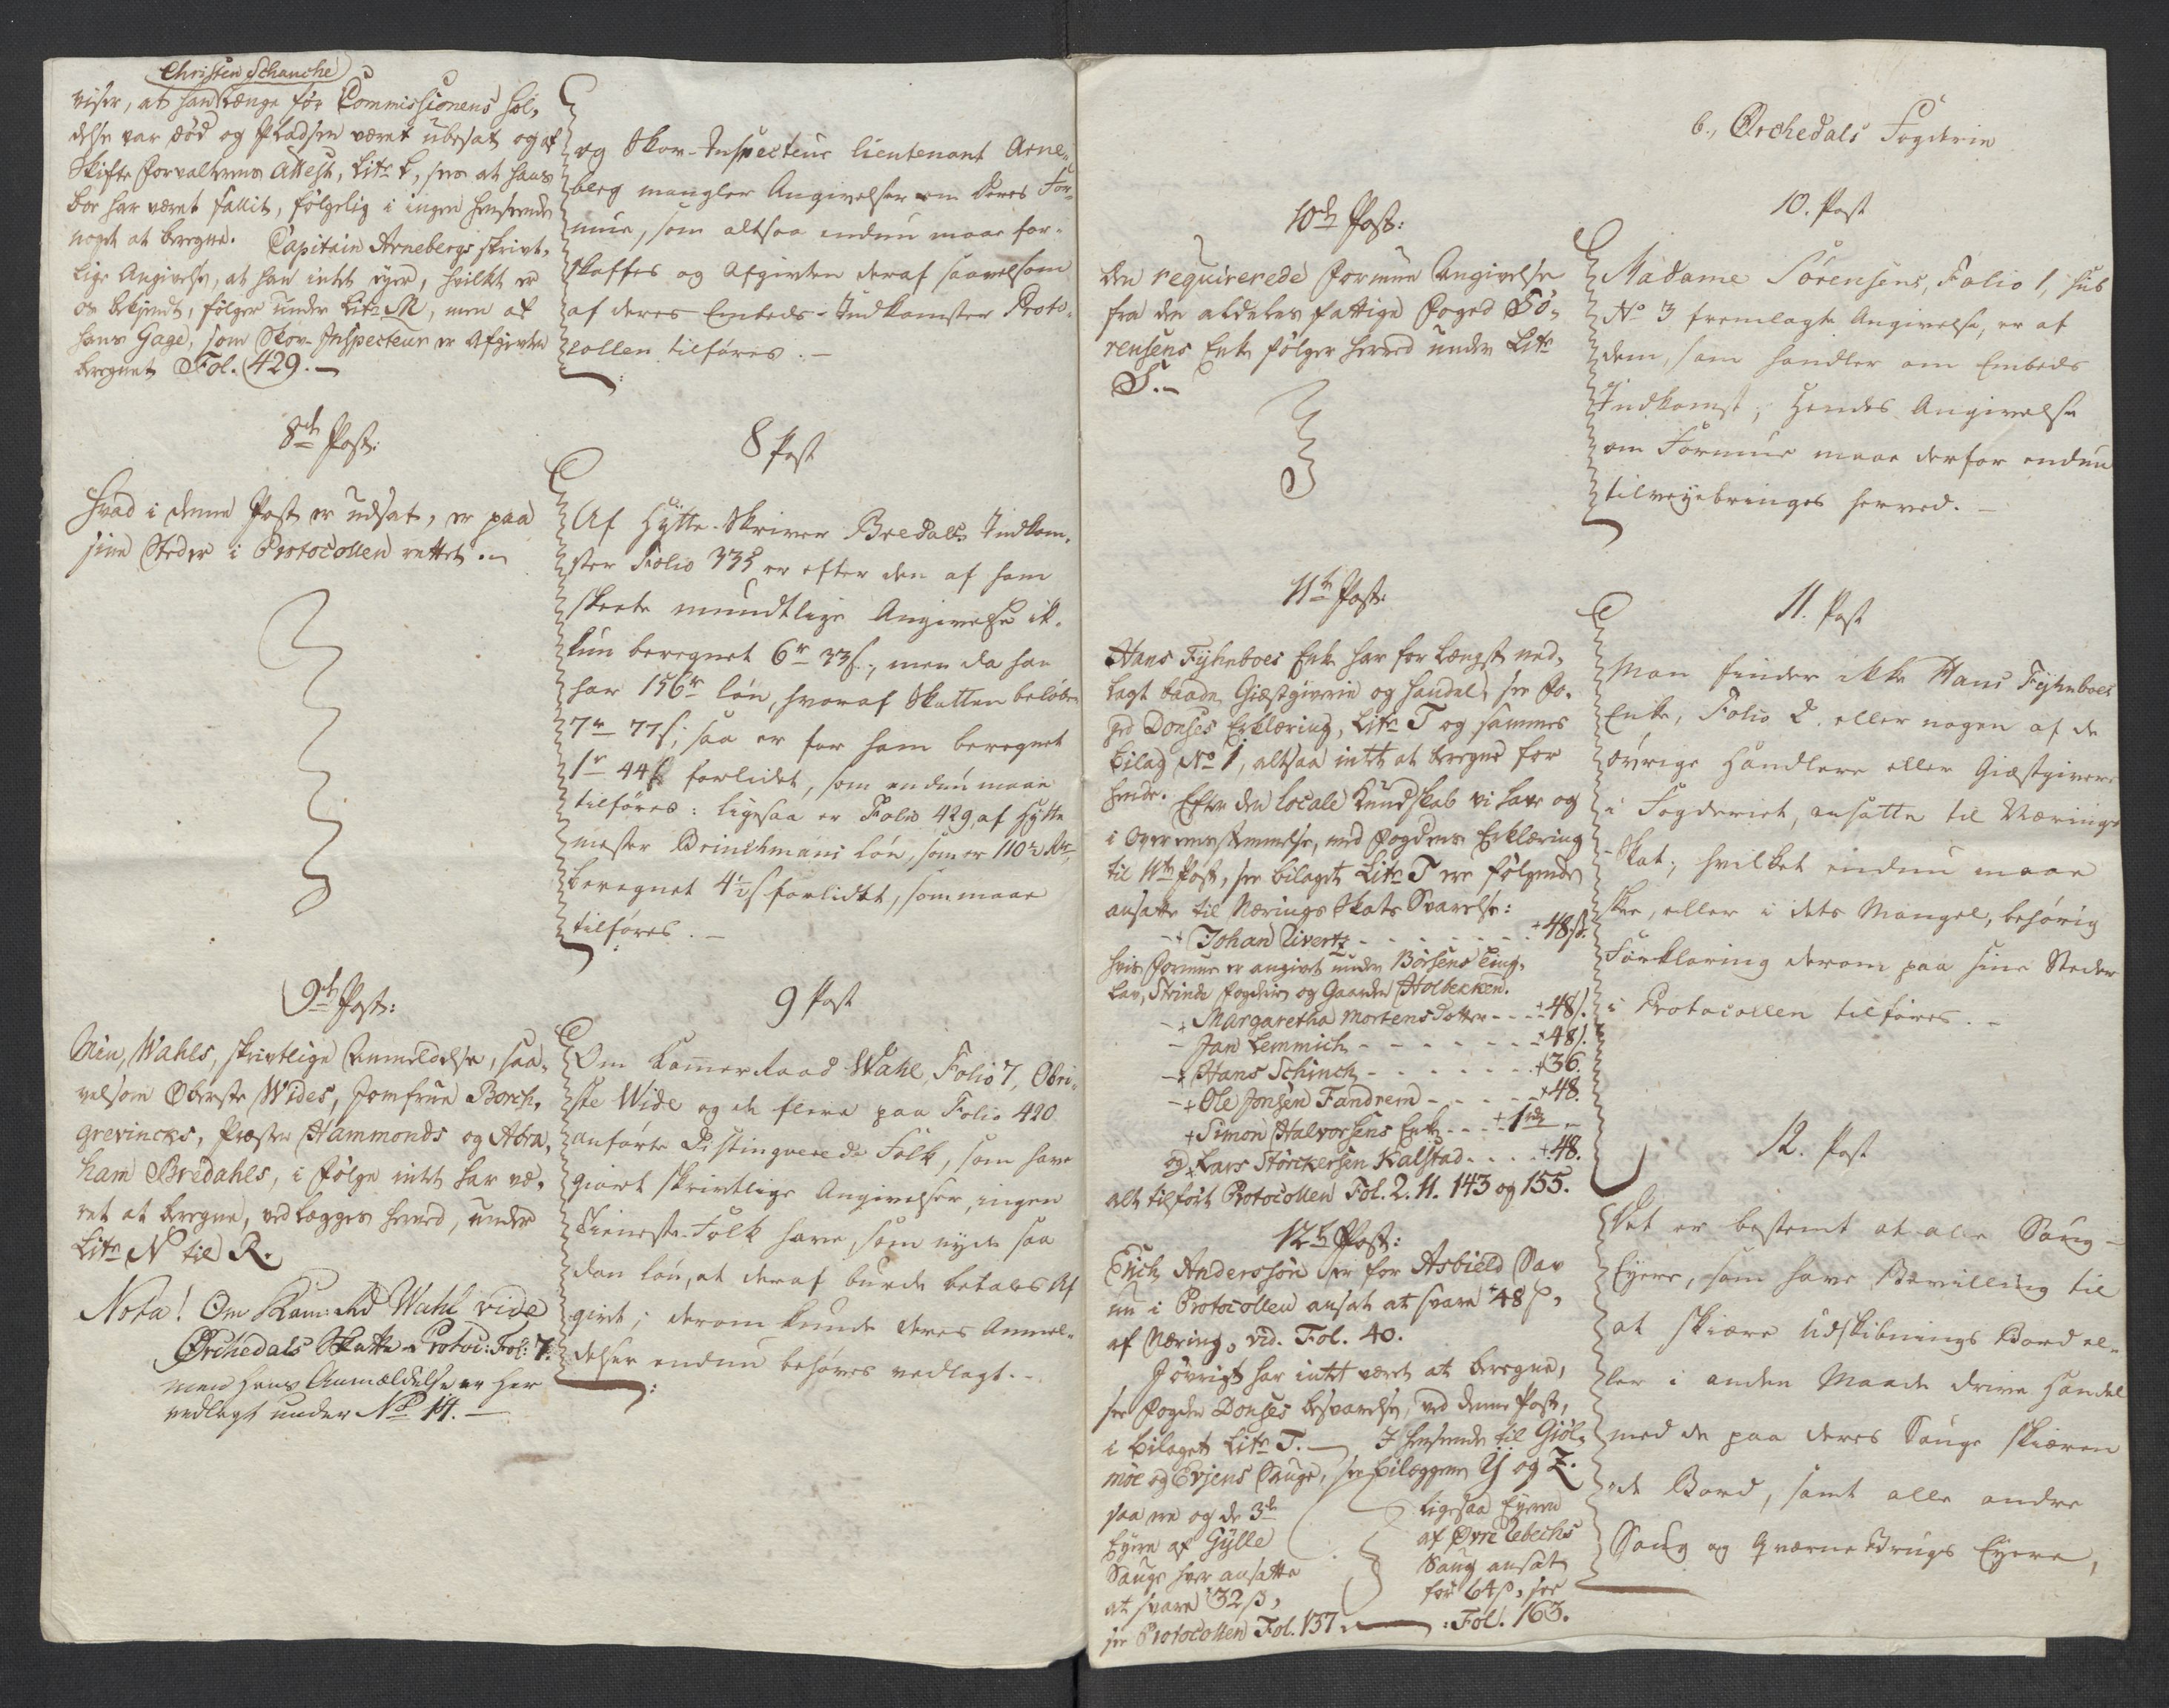 Christen Schanche
viser, at han længe før Commissionens hol-
delse var død og Pladsen været ubesat og af
Skifte Forvalterens Attest, Litr L, sees at hans
Boe har været fallit, følgelig i ingen henseende
noget at beregne. Capitain Arnebergs skrivt-
lige Angivelse, at han intet eyer, hvilket er
os bekjendt, følger under Litr M, men af
hans Gage, som Skov-Inspecteur er Afgivten
beregnet Fol. 429. —
8de Post:
Hvad i denne Post er udsat, er paa
sine Steder i Protocollen rettet. —
9de Post:
Min, Wahls, skrivtlige Anmeldelse, saa-
velsom Oberste Wides, Jomfrue Borch-
grevincks, Præsten Hammonds og Abra-
ham Bredahls, i følge intet har væ-
ret at beregne, vedlægges herved, under
Litr N til R.
Nota! Om Kam: Rd Wahl vide
Ørchedals Skatte-Protoc: Fol: 7.
men hans Anmældelse er her
vedlagt under No 14. —
og Skov-Inspecteur Lieutenant Arne-
berg mangler Angivelser om deres For-
mue, som altsaa endnu maae for-
skaffes og Afgivten deraf saavelsom
af deres Embeds-Indkomster Proto-
collen tilføres. —
8 Post
Af Hytte-Skriver Bredals Indkom-
ster Folio 335 er efter den af ham
skeete mundtlige Angivelse ik-
kun beregnet 6r 33s, men da han
har 156r løn, hvoraf Skatten beløber
7r 77s, saa er for ham beregnet
1r 44s forlidet, som endnu maae
tilføres: ligesaa er Folio 429, af Hytte
mester Brinchmans løn, som er 110 Rdr,
beregnet 4½s forlidet, som maae
tilføres. —
9 Post
Om Kammer Raad Wahl, Folio 7, Obri-
ste Wide og de flere paa Folio 420
anførte Distingverede Folk, som have
giort skrivtlige Angivelser, ingen
Tieneste-Folk have, som nyde saa
dan løn, at deraf burde betales Af
givt; derom kunde deres Anmel-
delser endnu behøves vedlagt. —
10de Post:
Den requirerede Formue Angivelse
fra den aldeles fattige Foged Sø-
rensens Enke følger herved under Litr
S. —
11te Post:
Hans Fyhnboes Enke har for længst ned-
lagt baade Giæstgiverie og Handel, see Fo-
ged Donses Erklæring, Litr T og sammes
bilag No 1, altsaa intet at beregne for
hende. Efter den locale Kundskab vi have og
i Overeensstemmelse med Fogdens Erklæring
til 11te Post, see bilaget Litr T ere følgende
ansatte til Nærings Skats Svarelse:
— + Johan Sivertz - - - - - + 48s.
hvis Formue er angivet under Børsens Ting-
lav, Strinde Fogderie og Gaarden Holbecken.
— + Margaretha Mortensdotter - - - + 48s.
— Jan Lemmich - - - - - + 48s.
— + Hans Schinch - - - - - + 36.
— + Ole Jonsen Fandrem - - - - - + 48.
+ Simon Halvorsens Enke - - - + 1rd —
og + Lars Størckersen Kalstad - - - + 48.
alt tilført Protocollen Fol. 2. 11. 143 og 155.
12te Post:
Erich Anderssøn er for Asbield Sav
nu i Protocollen ansat at svare 48s,
af Næring, vid. Fol. 40.
I øvrigt har intet været at beregne,
see Fogden Donses besvarelse, ved denne Post,
i bilaget Litr T. — I henseende til Giøl-
møe og Evjens Sauge, see bilaggene Y og Z.
saa ere og de 3de
Eyere af Gylle
Sauge hver ansatte
at svare 32s,
see Protocollen Fol. 137. —
ligesaa Eyeren
af Øvre Lebechs
Saug ansat
for 64s, see
: Fol. 163.
6., Ørchedals Fogderie
10. Post
Madame Sørensens, Folio 1, sub
No 3 fremlagte Angivelse, er af
dem, som handler om Embeds
Indkomst; hendes Angivelse
om Formue maae derfor endnu
tilveyebringes herved. —
11. Post
Man finder ikke Hans Fyhnboes
Enke, Folio 2. eller nogen af de
øvrige Handlere eller Giæstgivere
i Fogderiet, ansatte til Nærings
Skat; hvilket endnu maae
skee, eller i dets Mangel, behørig
Forklaring derom paa sine Steder
i Protocollen tilføres. —
12. Post
Det er bestemt at alle Saug-
Eyere, som have Bevilling til
at skiære Udskibnings Bord el-
ler i anden Maade drive Handel
med de paa deres Sauge skiæren
de Bord, samt alle andre
Saug og Qværne Brugs Eyere,